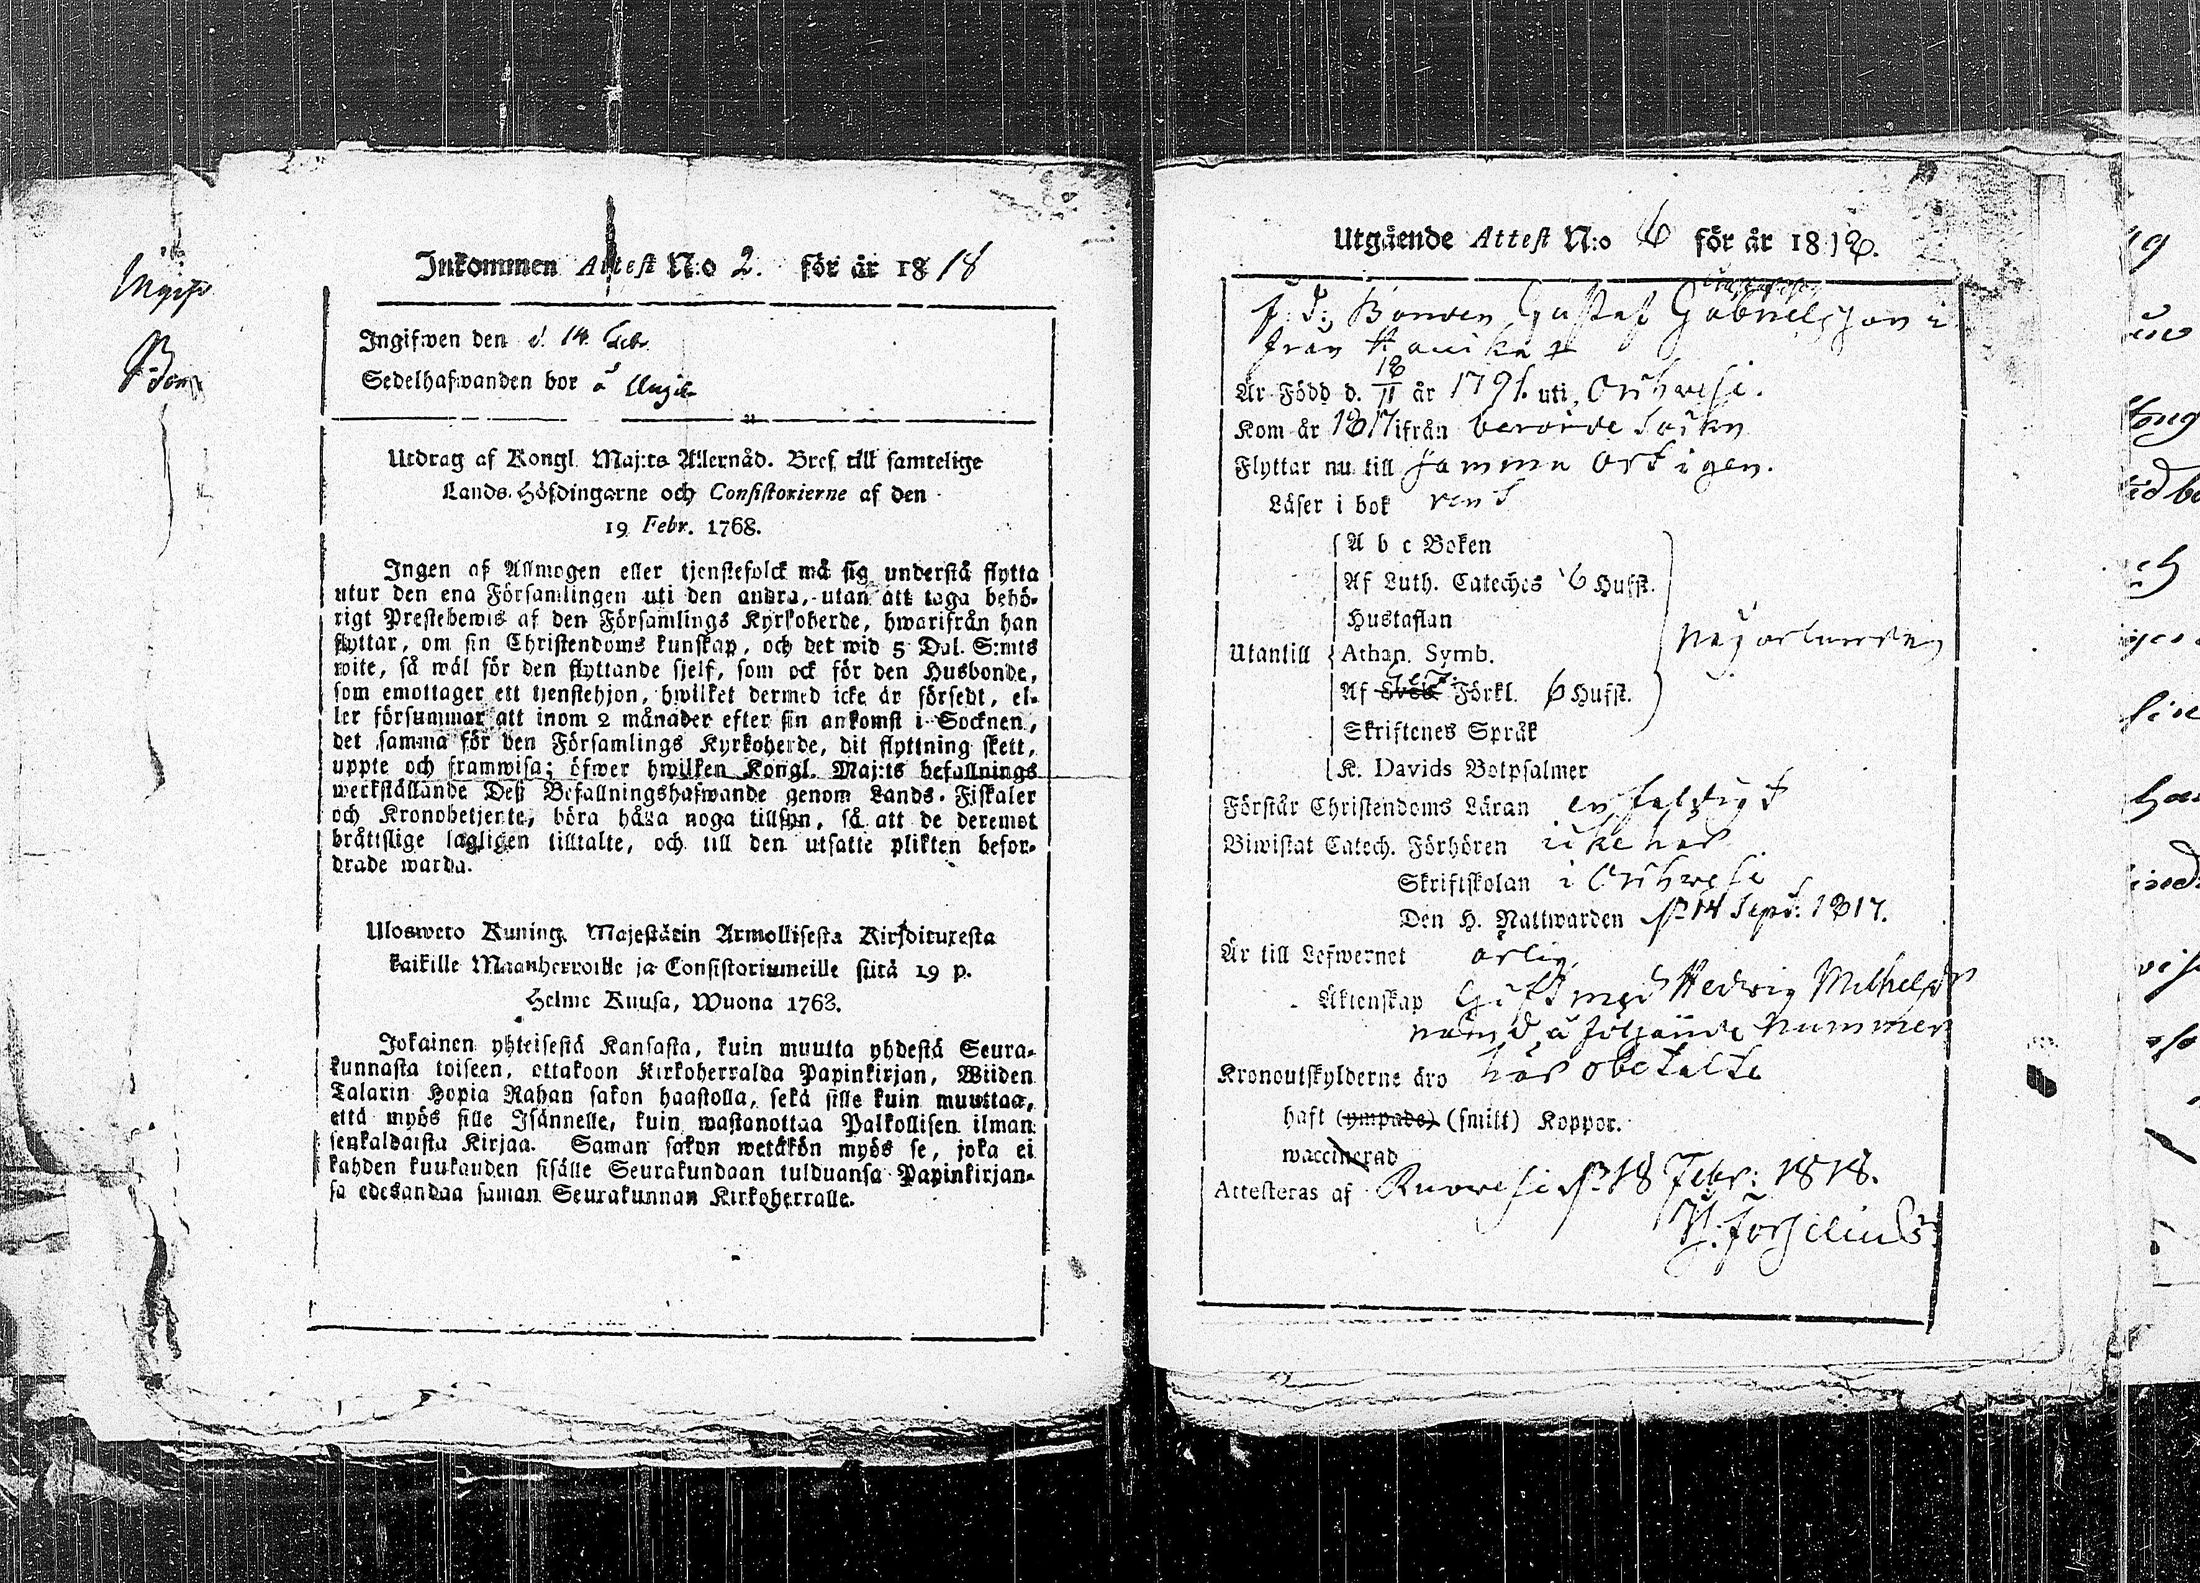 Inkommen Attest N:o 2. för år 1818
Ingifwen den d. 14 Febr.
Sedelhafwanden bor å
Utdrag af Kongl. Maj:ts Allernåd. Bref till samtelige
Lands-Höfdingarne och Consistorierne af den
19 Febr. 1768.
Ingen af Allmogen eller tjenstefolck må sig understå flytta
utur den ena Församlingen uti den andra, utan att taga behö-
rigt Prestebewis af den Församlings Kyrkoherde, hwarifrån han
flyttar, om sin Christendoms kunskap, och det wid 5 Dal. S:mts
wite, så wäl för den flyttande sjelf, som ock för den Husbonde,
som emottager ett tjenstehjon, hwilket dermed icke är försedt, el-
ler försummar att inom 2 månader efter sin ankomst i Socknen,
det samma för den Församlings Kyrkoherde, dit flyttning skett,
uppte och framwisa; öfwer hwilken Kongl. Maj:ts befallnings
werkställande Deß Befallningshafwande genom Lands-Fiskaler
och Kronobetjente, böra hålla noga tillsyn, så att de deremot
bråttslige lagligen tilltalte, och till den utsatte plikten befor-
drade warda.
Uloswero Kuning. Majestätin Armollisesta Kirjoituxesta
kaikille Maanherroille ja Consistoriumeille siitä 19 p.
Helme Kuusa, Wuona 1768.
Jokainen yhteisestä Kansasta, kuin muutta yhdestä Seura-
kunnasta toiseen, ottakoon Kirkoherralda Papinkirjan, Wiiden
Talarin Hopia Rahan sakon haastolla, sekä sille kuin muuttaa,
että myös sille Isännelle, kuin wastanottaa Palkollisen ilman
senkaldaista Kirjaa. Saman sakon wetäkön myös se, joka ei
kahden kuukauden sisälle Seurakundaan tulduansa Papinkirjan-
sa edesandaa saman Seurakunnan Kirkoherralle.
Utgående Attest N:o 6 för år 1818.
f. d. Bonden Gustaf Gabrielsson
från
Är Född d. 18/11 år 1791. uti Orihwesi.
Kom år 1817 ifrån berörde Sockn
Flyttar nu till samma Ort igen.
Läser i bok rent
Utantill
A b c Boken
Af Luth. Cateches 6 Hufst.
Hustaflan
Athan. Symb.
Af Förkl. 6 Hufst.
Skriftenes Språk
K. Davids Botpsalmer
någorlunda
Förstår Christendoms Läran enfaldigt
Biwistat Catech. Förhören icke här
Skriftskolan i Orihwesi
Den H. Nattwarden d. 14 Sept: 1817.
Är till Lefwernet ärlig,
Äktenskap Gift med Hedwig Wilhelms
nämd å följande Nummer
Kronoutskylderne äro här obetalte
haft (ympade) (smitt) Koppor.
waccinerad
Attesteras af Ruowesi d. 18 Febr: 1818.
Forselius